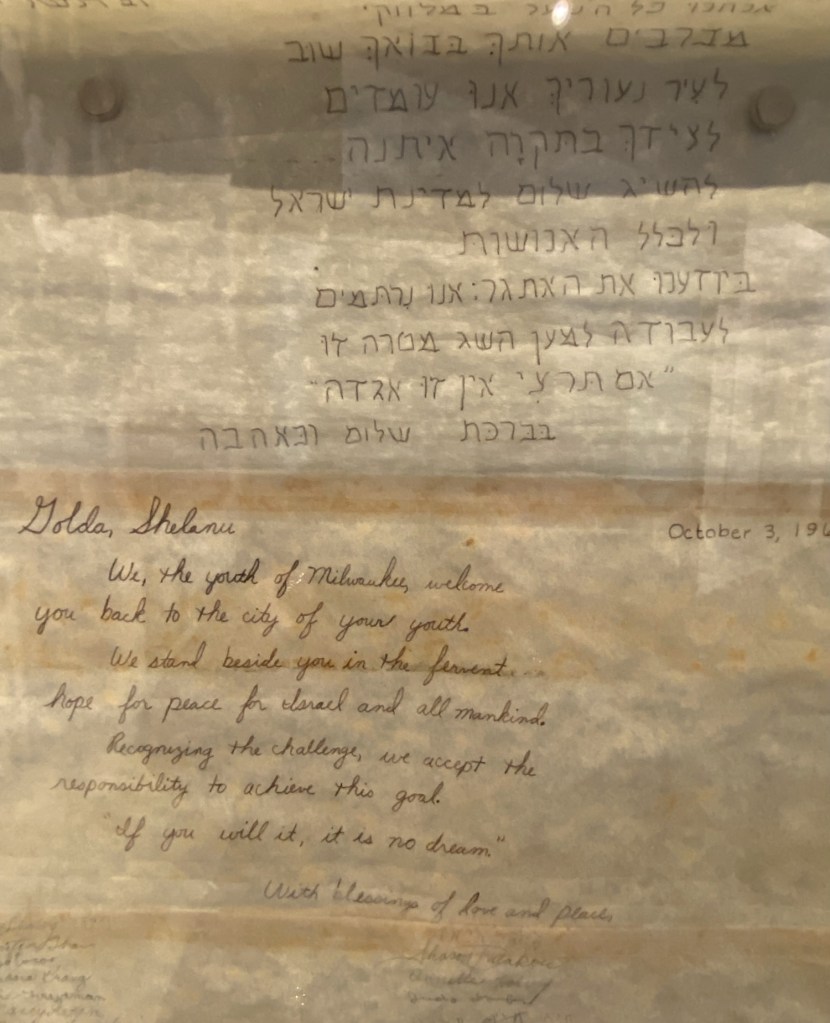 אנחנו כל הנוער במלווקי
מברכים אותך בבואך שוב
לעיר נעוריך אנו עומדים
לצידך בתקוָה איתנה...
להשיג שלום למדינת ישראל
ולכלל האנושות
ביודענו את האתגר: אנו נרתמים
לעבודה למען השג מטרה זו
"אם תרצי אין זו אגדה"
בברכת שלום ובאהבה
Golda, Shelanu
October 3, 196
We, the youth of Milwaukee, welcome
you back to the city of your youth.
We stand beside you in the fervent...
hope for peace for Israel and all mankind.
Recognizing the challenge, we accept the
responsibility to achieve this goal.
"If you will it, it is no dream."
With blessings of love and peace,
Sharon